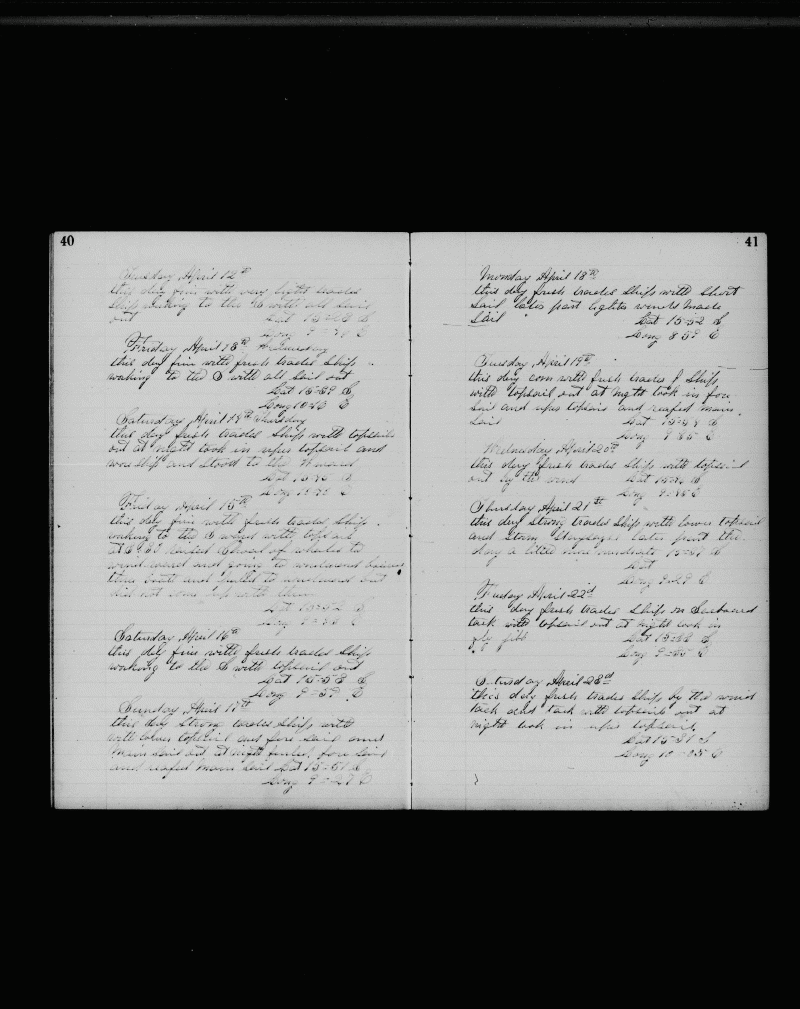 40
Tuesday April 12th
this day fine with very light trades
Ship working to the S with all sail
out
Lat 15
Long 9
Friday April 13th Wednesday
this day fine with fresh trades Ship
working to the S with all sail out
Lat 15-39 S
Long 10 E
Saturday April 14th Thursday
this day fresh trades Ship with topsails
out at night took in uper topsail and
wore ship and stood to the
Lat 15 S
Long 10 E
Friday April 15th
this day fine with fresh trades Ship
working to the S wind with topsail
at raised Shoal of whales to
wind-ward and going to windward lowered
three boats and pulled to windward but
did not come up with them
Lat S
Long 9 E
Saturday April 16th
this day fine with fresh trades Ship
working to the S with topsail out
Lat 15-58 S
Long 9-59 E
Sunday April 17th
this day strong trades Ship with
with lower topsail and fore sail and
main sail out at night furled fore sail
and reafed main sail Lat 15-51 S
Long 9-27 E
41
Monday April 18th
this day fresh trades Ship with short
sail later part lighter winds made
sail
Lat 15-52 S
Long 8-59 E
Tuesday April 19th
this day com with fresh trades Ship
with topsail out at night took in fore
sail and uper topsail and reafed main
sail Lat 15 S
Long E
Wednesday April 20th
this day fresh trades Ship with topsail
out by the wind Lat S
Long 9 E
Thursday April 21st
this day strong trades Ship with lower topsail
and storm staysail later part the
day a little more moderate 15-37 S
Lat
Long 9-29 E
Friday April 22d
this day fresh trades Ship on Starboard
tack with topsail out at night took in
fly jibb Lat 15 S
Long 9 E
Saturday April 23d
this day fresh trades Ship by the wind
tack and tack with topsails out at
night took in uper topsails
Lat 15-31 S
Long 10-05 E